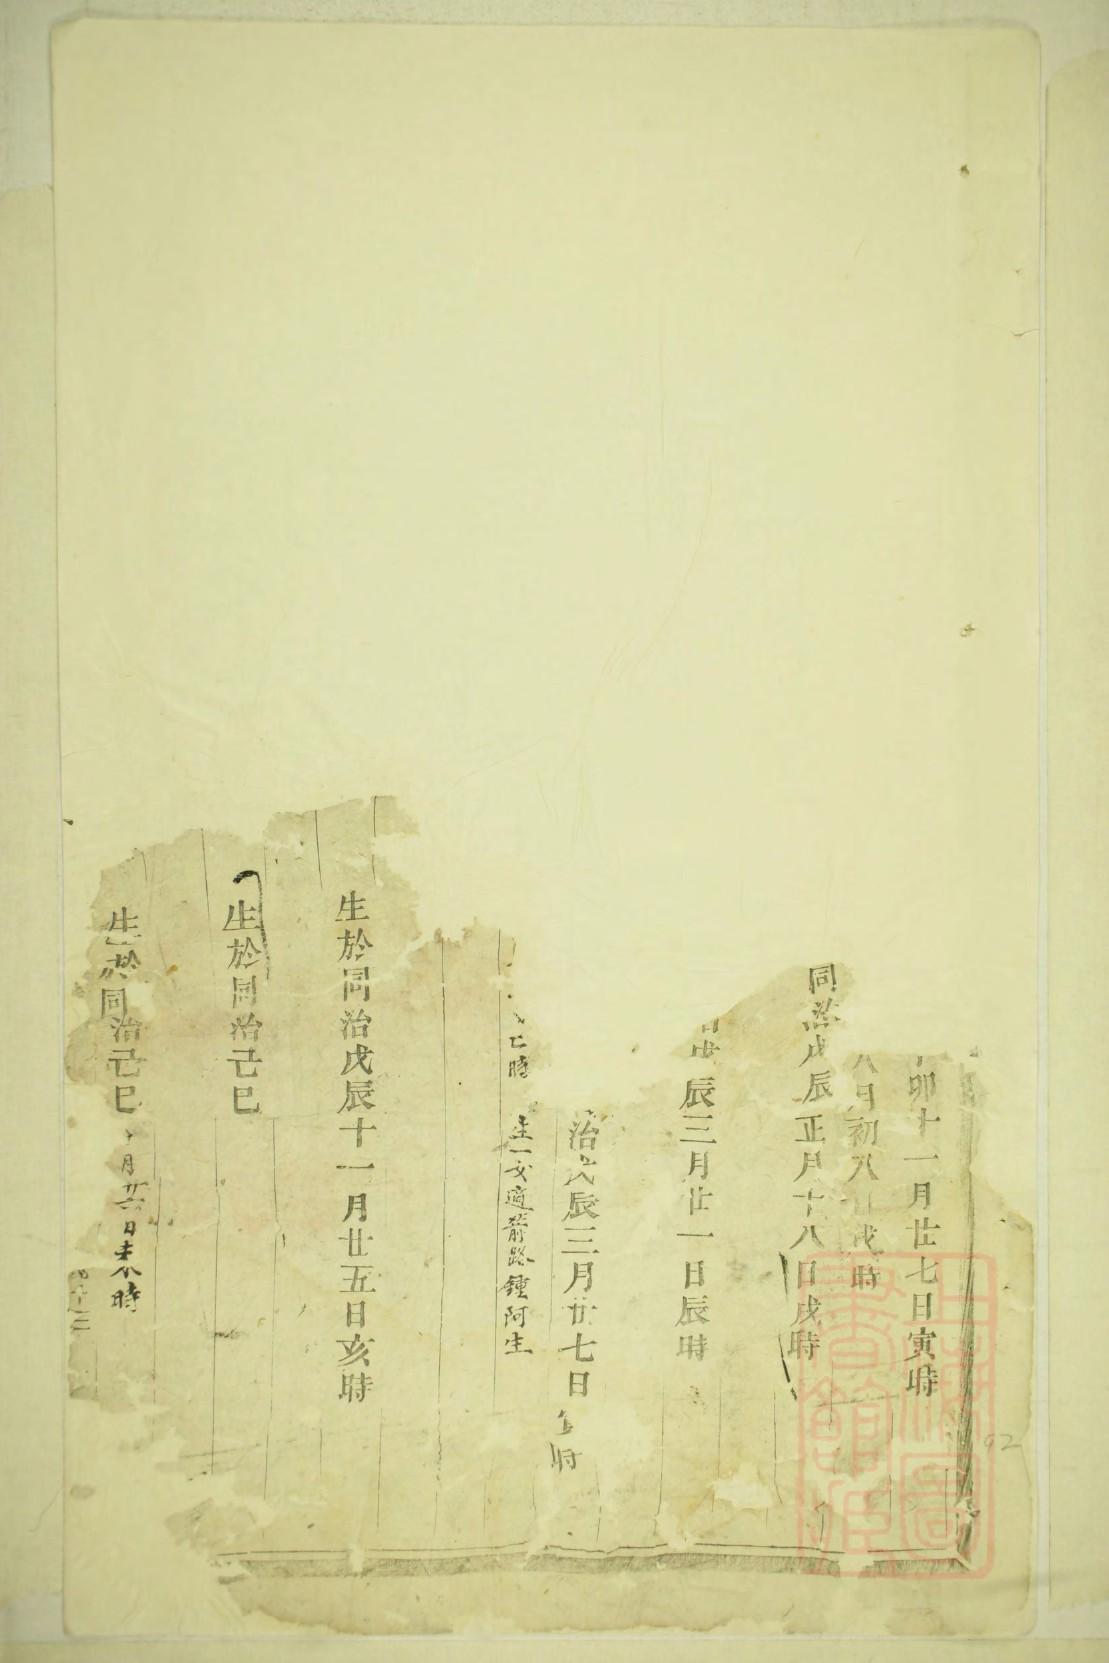 卯十一月廿七日寅時
八月初八日戌時
同治戊辰正月十八日戌時
辰三月廿一日辰時
治戊辰三月廿七日
時
時 生一女適箭路鍾阿生
生於同治戊辰十一月廿五日亥時
生於同治己巳
生於同治己巳 月廿六日未時
上海圖書館藏
92